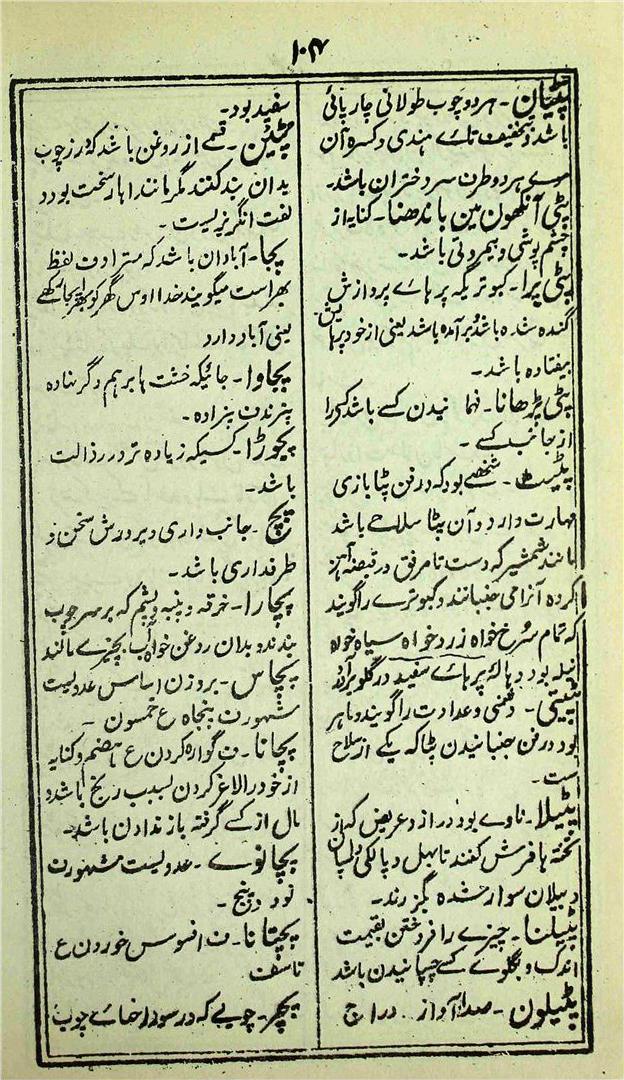 پٹیان۔ ہر دو چوب طولانی چارپائی
باشد و تخفیف تاے ہندی و کسرہ آن
موے ہر دو طرف سر دختران باشد۔
پٹی آنکھون مین باندھنا۔ کنایہ از
چشم پوشی و بیمروتی باشد۔
پٹی پرا۔ کبوتریکہ پرہاے پروازش
کندہ شدہ باشد برآمدہ باشد یعنی از خود پرہایش
بیفتادہ باشد۔
پٹی پڑھانا۔ فہمانیدن کسے باشد کسی را
از جانب کسے۔
پٹیت۔ شخصے بود کہ در فن پٹا بازی
مہارت دارد و آن پٹا سلاحے باشد
مانند شمشیر کہ دست تا مرفق در قبضہ
کردہ آنرا می جنبانند و کبوترے را گویند
کہ تمام سرخ خواہ زرد خواہ سیاہ خواہ
نیلہ بود و ہالہ پرہاے سفید در گلو
پٹیتی۔ دشمنی و عداوت را گویند و ماہر
بود در فن جنبانیدن پٹا کہ یکے از سلاح
است۔
پٹیلا۔ ناوے بود دراز و عریض کہ از
تختہ ہا فرش کنند تا سہل و پالکی
و بیلان سوار شدہ بگزرند۔
پٹیلنا۔ چیزے را فروختن بقیمت
اندک و بگلوے کسے چسپانیدن باشد
پٹیلون۔ صدا آواز دراج
سفید بود۔
پٹین۔ قسمے از روغن باشد کہ درز چوب
بدان بند کنند مگر مانند اہار سخت بود و
لغت انگریزیست۔
پجا۔ آبادان باشد کہ مترادف لفظ
بھرا ست میگویند خدا اوس گھر کو بھرا پجا رکھے
یعنی آباد دارد
پجاوا۔ جائیکہ خشت ہا برہم دگر نہادہ
پزند ف پزادہ۔
پجوڑا۔ کسیکہ زیادہ تر در رذالت
باشد۔
پچ۔ جانب داری و پرورش سخن و
طرفداری باشد۔
پچارا۔ خرقہ و پنبہ و پشم کہ بر سر چوب
بندند و بدان روغن خواہ آب بچیزے مالند
پچاس۔ بروزن اساس عددیست
مشہور ف پنجاہ ع خمسون۔
پچانا۔ ف گوارہ کردن ع ہضم و کنایہ
از خود را لاغر کردن بسبب رنج باشد و
مال از کسے گرفتہ باز ندادن باشد۔
پچانوے۔ عددیست مشہور ف
نود و پنج۔
پچتانا۔ ف افسوس خوردن ع
تاسف
پچر۔ چوبے کہ در سوراخہاے چوب
۱۰۲